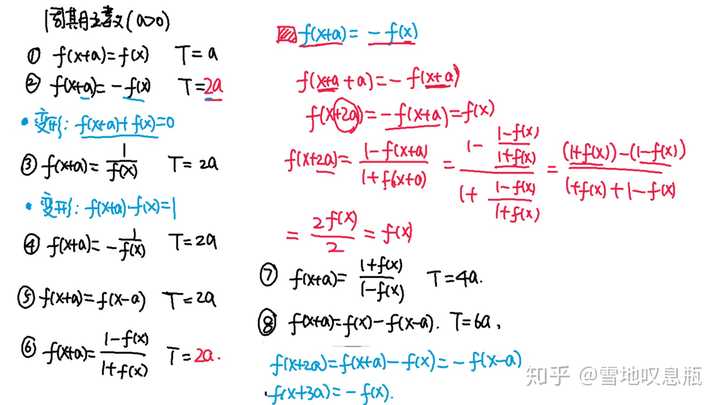 周期函数(a>0)
① f(x+a)=f(x) T=a
② f(x+a)=-f(x) T=2a
• 变形: f(x+a)+f(x)=0
③ f(x+a)=1/f(x) T=2a
• 变形: f(x+a)·f(x)=1
④ f(x+a)=-1/f(x) T=2a
⑤ f(x+a)=f(x-a) T=2a
⑥ f(x+a)=(1-f(x))/(1+f(x)) T=2a.
f(x+a)=-f(x)
f(x+a+a)=-f(x+a)
f(x+2a)=-f(x+a)=f(x)
f(x+2a)=(1-f(x+a))/(1+f(x+a))=(1-(1-f(x))/(1+f(x)))/(1+(1-f(x))/(1+f(x)))=((1+f(x))-(1-f(x)))/(1+f(x)+1-f(x))
=2f(x)/2=f(x)
⑦ f(x+a)=(1+f(x))/(1-f(x)) T=4a.
⑧ f(x+a)=f(x)-f(x-a). T=6a,
f(x+2a)=f(x+a)-f(x)=-f(x-a)
f(x+3a)=-f(x).
知乎 @雪地叹息瓶